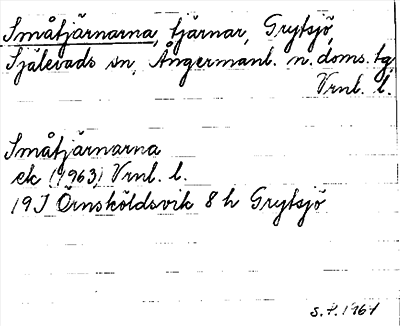 Småtjärnarna, tjärnar, Grytsjö,
Själevads sn, Ångermanl. n. doms. tg,
Vrnl. l.
Småtjärnarna
ek (1963) Vrnl. l.
19J Örnsköldsvik 8 h Grytsjö
S.F. 1964